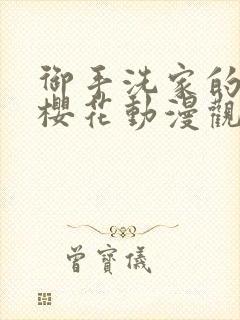 御手洗家的
櫻花動漫觀
曾寶儀